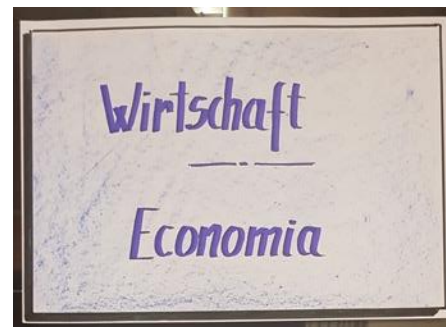 Wirtschaft
Economia